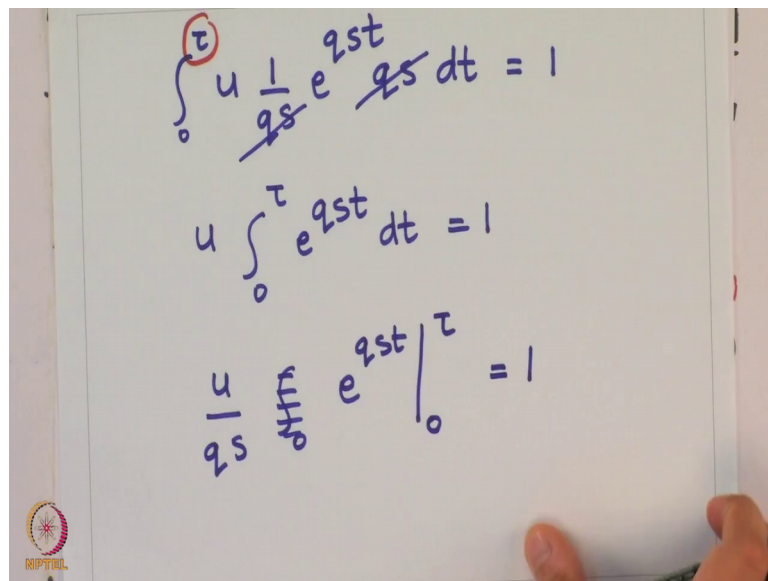 ∫₀^τ u 1/qs e^qst qs dt = 1
u ∫₀^τ e^qst dt = 1
u/qs e^qst |₀^τ = 1
NPTEL